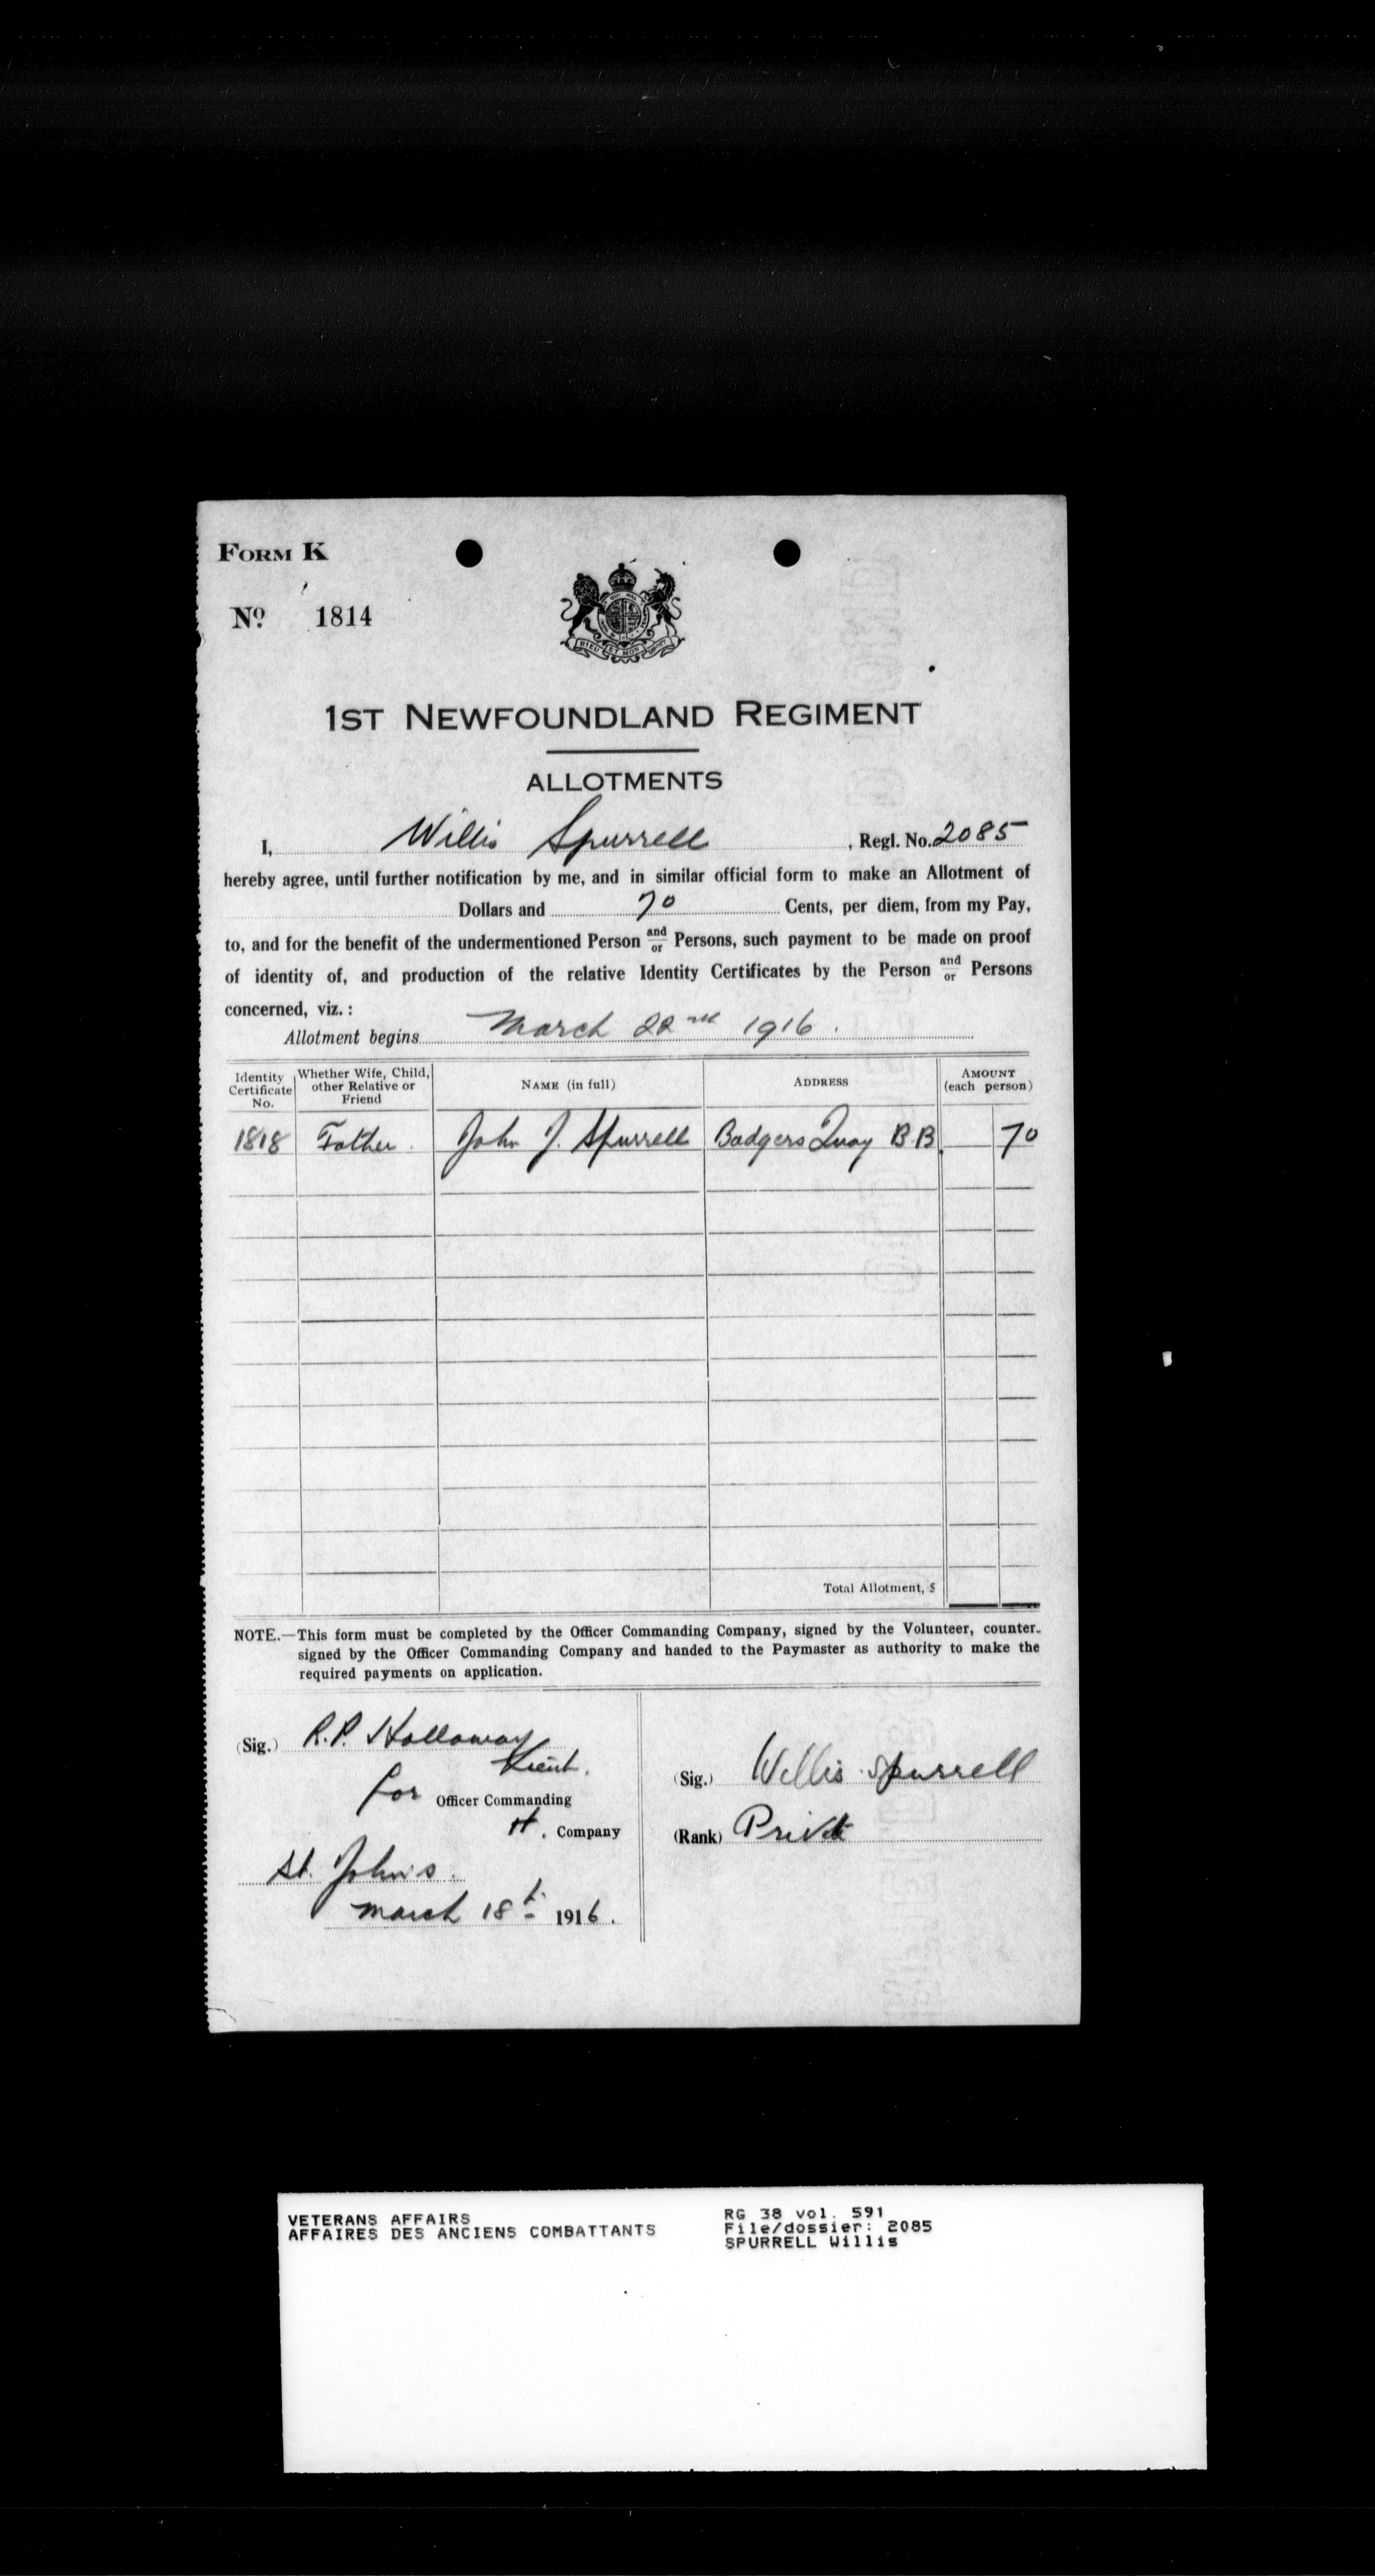 FORM K
No. 1814
DIEU ET MON DROIT
1ST NEWFOUNDLAND REGIMENT
ALLOTMENTS
I, Willis Spurrell, Regl. No. 2085
hereby agree, until further notification by me, and in similar official form to make an Allotment of
Dollars and 70 Cents, per diem, from my Pay,
to, and for the benefit of the undermentioned Person and/or Persons, such payment to be made on proof
of identity of, and production of the relative Identity Certificates by the Person and/or Persons
concerned, viz.:
Allotment begins March 22nd 1916.
Identity Certificate No. Whether Wife, Child, other Relative or Friend NAME (in full) ADDRESS AMOUNT (each person)
1818 Father. John J. Spurrell Badgers Quay B.B. 70
Total Allotment, $
NOTE.—This form must be completed by the Officer Commanding Company, signed by the Volunteer, counter-
signed by the Officer Commanding Company and handed to the Paymaster as authority to make the
required payments on application.
(Sig.) R.P. Holloway
Lieut.
for Officer Commanding
H. Company
St. John's.
March 18th 1916.
(Sig.) Willis Spurrell
(Rank) Privet
VETERANS AFFAIRS
AFFAIRES DES ANCIENS COMBATTANTS
RG 38 vol. 591
File/dossier: 2085
SPURRELL Willis